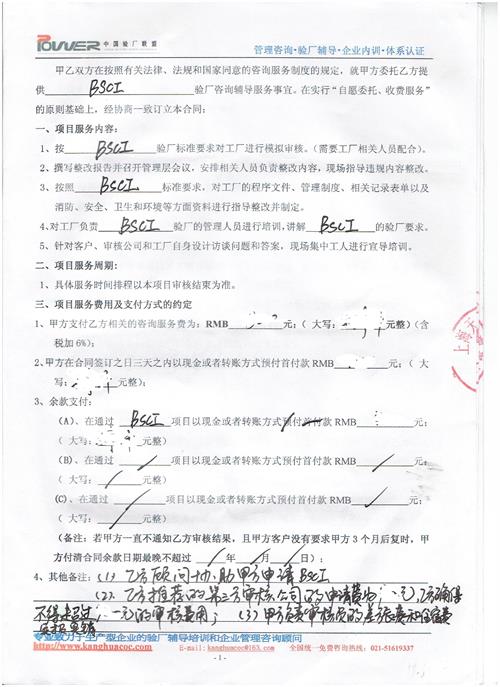 POWER 中国验厂联盟
管理咨询·验厂辅导·企业内训·体系认证
甲乙双方在按照有关法律、法规和国家同意的咨询服务制度的规定，就甲方委托乙方提
供 BSCI 验厂咨询辅导服务事宜。在实行“自愿委托、收费服务”
的原则基础上，经协商一致订立本合同：
一、项目服务内容：
1、按 BSCI 验厂标准要求对工厂进行模拟审核。（需要工厂相关人员配合）。
2、撰写整改报告并召开管理层会议，安排相关人员负责整改内容，现场指导违规内容整改。
3、按照 BSCI 标准要求，对工厂的程序文件、管理制度、相关记录表单以及
消防、安全、卫生和环境等方面资料进行指导整改并制定。
4、对工厂负责 BSCI 验厂的管理人员进行培训，讲解 BSCI 的验厂要求。
5、针对客户、审核公司和工厂自身设计访谈问题和答案，现场集中工人进行宣导培训。
二、项目服务周期：
1、具体服务时间排程以本项目审核结束为准。
三、项目服务费用及支付方式的约定
1、甲方支付乙方相关的咨询服务费为：RMB 元；（ 大写： 元整）（含
税加 6%）；
2、甲方在合同签订之日三天之内以现金或者转账方式预付首付款 RMB 元；（ 大
写： 元整）；
3、余款支付：
（A）、在通过 BSCI 项目以现金或者转账方式预付首付款 RMB 元；
（ 大写： 元整）
（B）、在通过 项目以现金或者转账方式预付首付款 RMB 元；
（ 大写： 元整）
（C）、在通过 项目以现金或者转账方式预付首付款 RMB 元；
（ 大写： 元整）
（备注：若甲方一直不通知乙方审核结果，且甲方客户没有要求甲方 3 个月后复时，甲
方付清合同余款日期最晚不超过 / 年 / 月 / 日）；
4、其他备注：(1) 乙方顾问协助甲方申请BSCI
(2). 乙方推荐的第三方审核公司的申请费为 元，乙方确保
不得超过 元的审核费用； (3) 甲方负责审核员的差旅费和住宿费
实报实销
专业致力于生产型企业的验厂 辅导培训和企业管理咨询顾问
http://www.kanghuacoc.com E-mail: kanghuacoc@163.com 全国统一免费咨询热线：021-51619337
- 1 -
上海